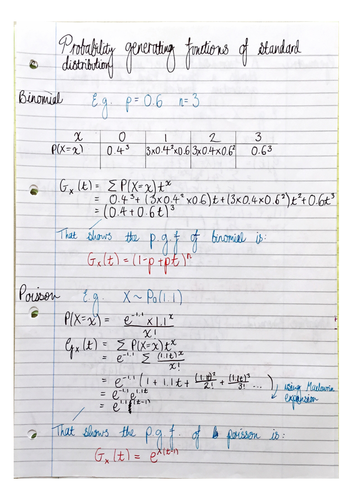 Probability generating functions of standard
distribution
Binomial E.g. p = 0.6 n = 3
x 0 1 2 3
P(X=x) 0.4³ 3×0.4²×0.6 3×0.4×0.6² 0.6³
Gₓ(t) = ΣP(X=x)tˣ
= 0.4³ + (3×0.4²×0.6)t + (3×0.4×0.6²)t² + 0.6t³
= (0.4 + 0.6t)³
That shows the p.g.f of binomial is:
Gₓ(t) = (1-p+pt)ⁿ
Poisson E.g. X ~ Po(1.1)
P(X=x) = e⁻¹·¹ × 1.1ˣ / x!
Gₓ(t) = ΣP(X=x)tˣ
= e⁻¹·¹ Σ (1.1t)ˣ / x!
= e⁻¹·¹ (1 + 1.1t + (1.1t)²/2! + (1.1t)³/3! ...)
using Maclaurin
expansion
= e⁻¹·¹ e¹·¹ᵗ
= e¹·¹⁽ᵗ⁻¹⁾
That shows the p.g.f. of poisson is:
Gₓ(t) = e^λ(t-1)